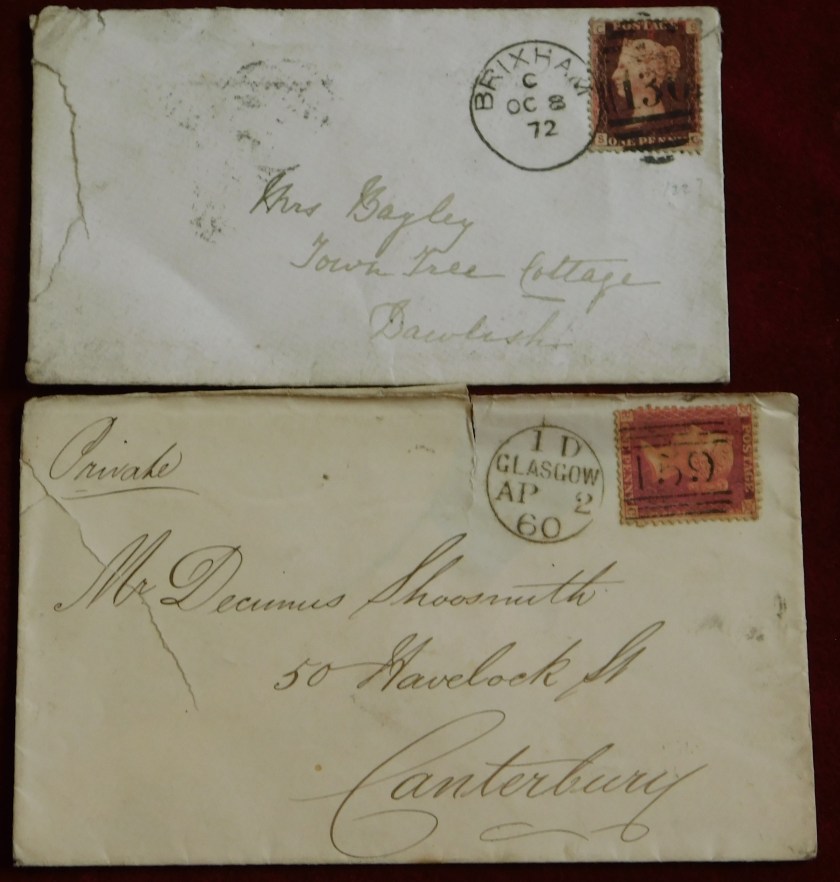 BRIXHAM
C
OC 8
72
POSTAGE
ONE PENNY
Mrs Bayley
Town Tree Cottage
Dawlish
Private
1 D
GLASGOW
AP 2
60
159
Mr Decimus Shoosmith
50 Havelock St
Canterbury